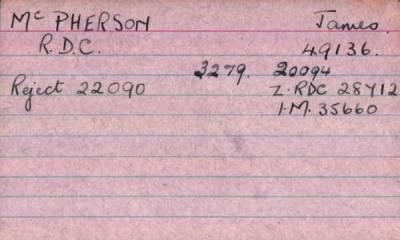 Mc PHERSON James.
R.D.C. 49136.
3279. 20094
Reject 22090 Z. RDC 28412
I.M. 35660